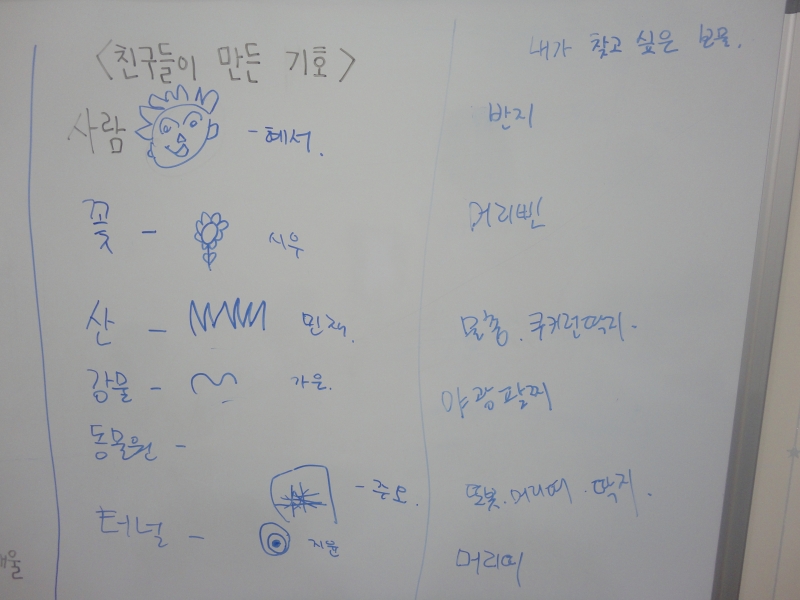 <친구들이 만든 기호>
사람 - 혜서.
꽃 - 시우
산 - 민재.
강물 - 가은.
동물원 -
터널 - - 준모.
지윤
내가 찾고 싶은 보물.
반지
머리삔
물총.
야광팔찌
또봇. 머리띠. 딱지.
머리띠